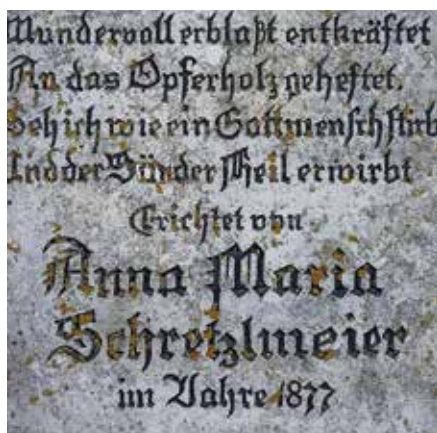 Wundervoll erblaßt entkräftet
An das Opferholz geheftet.
Seh ich wie ein Gottmensch stirb
Und der Sünder Heil erwirbt
Erichtet von
Anna Maria
Schretzlmeier
im Jahre 1877